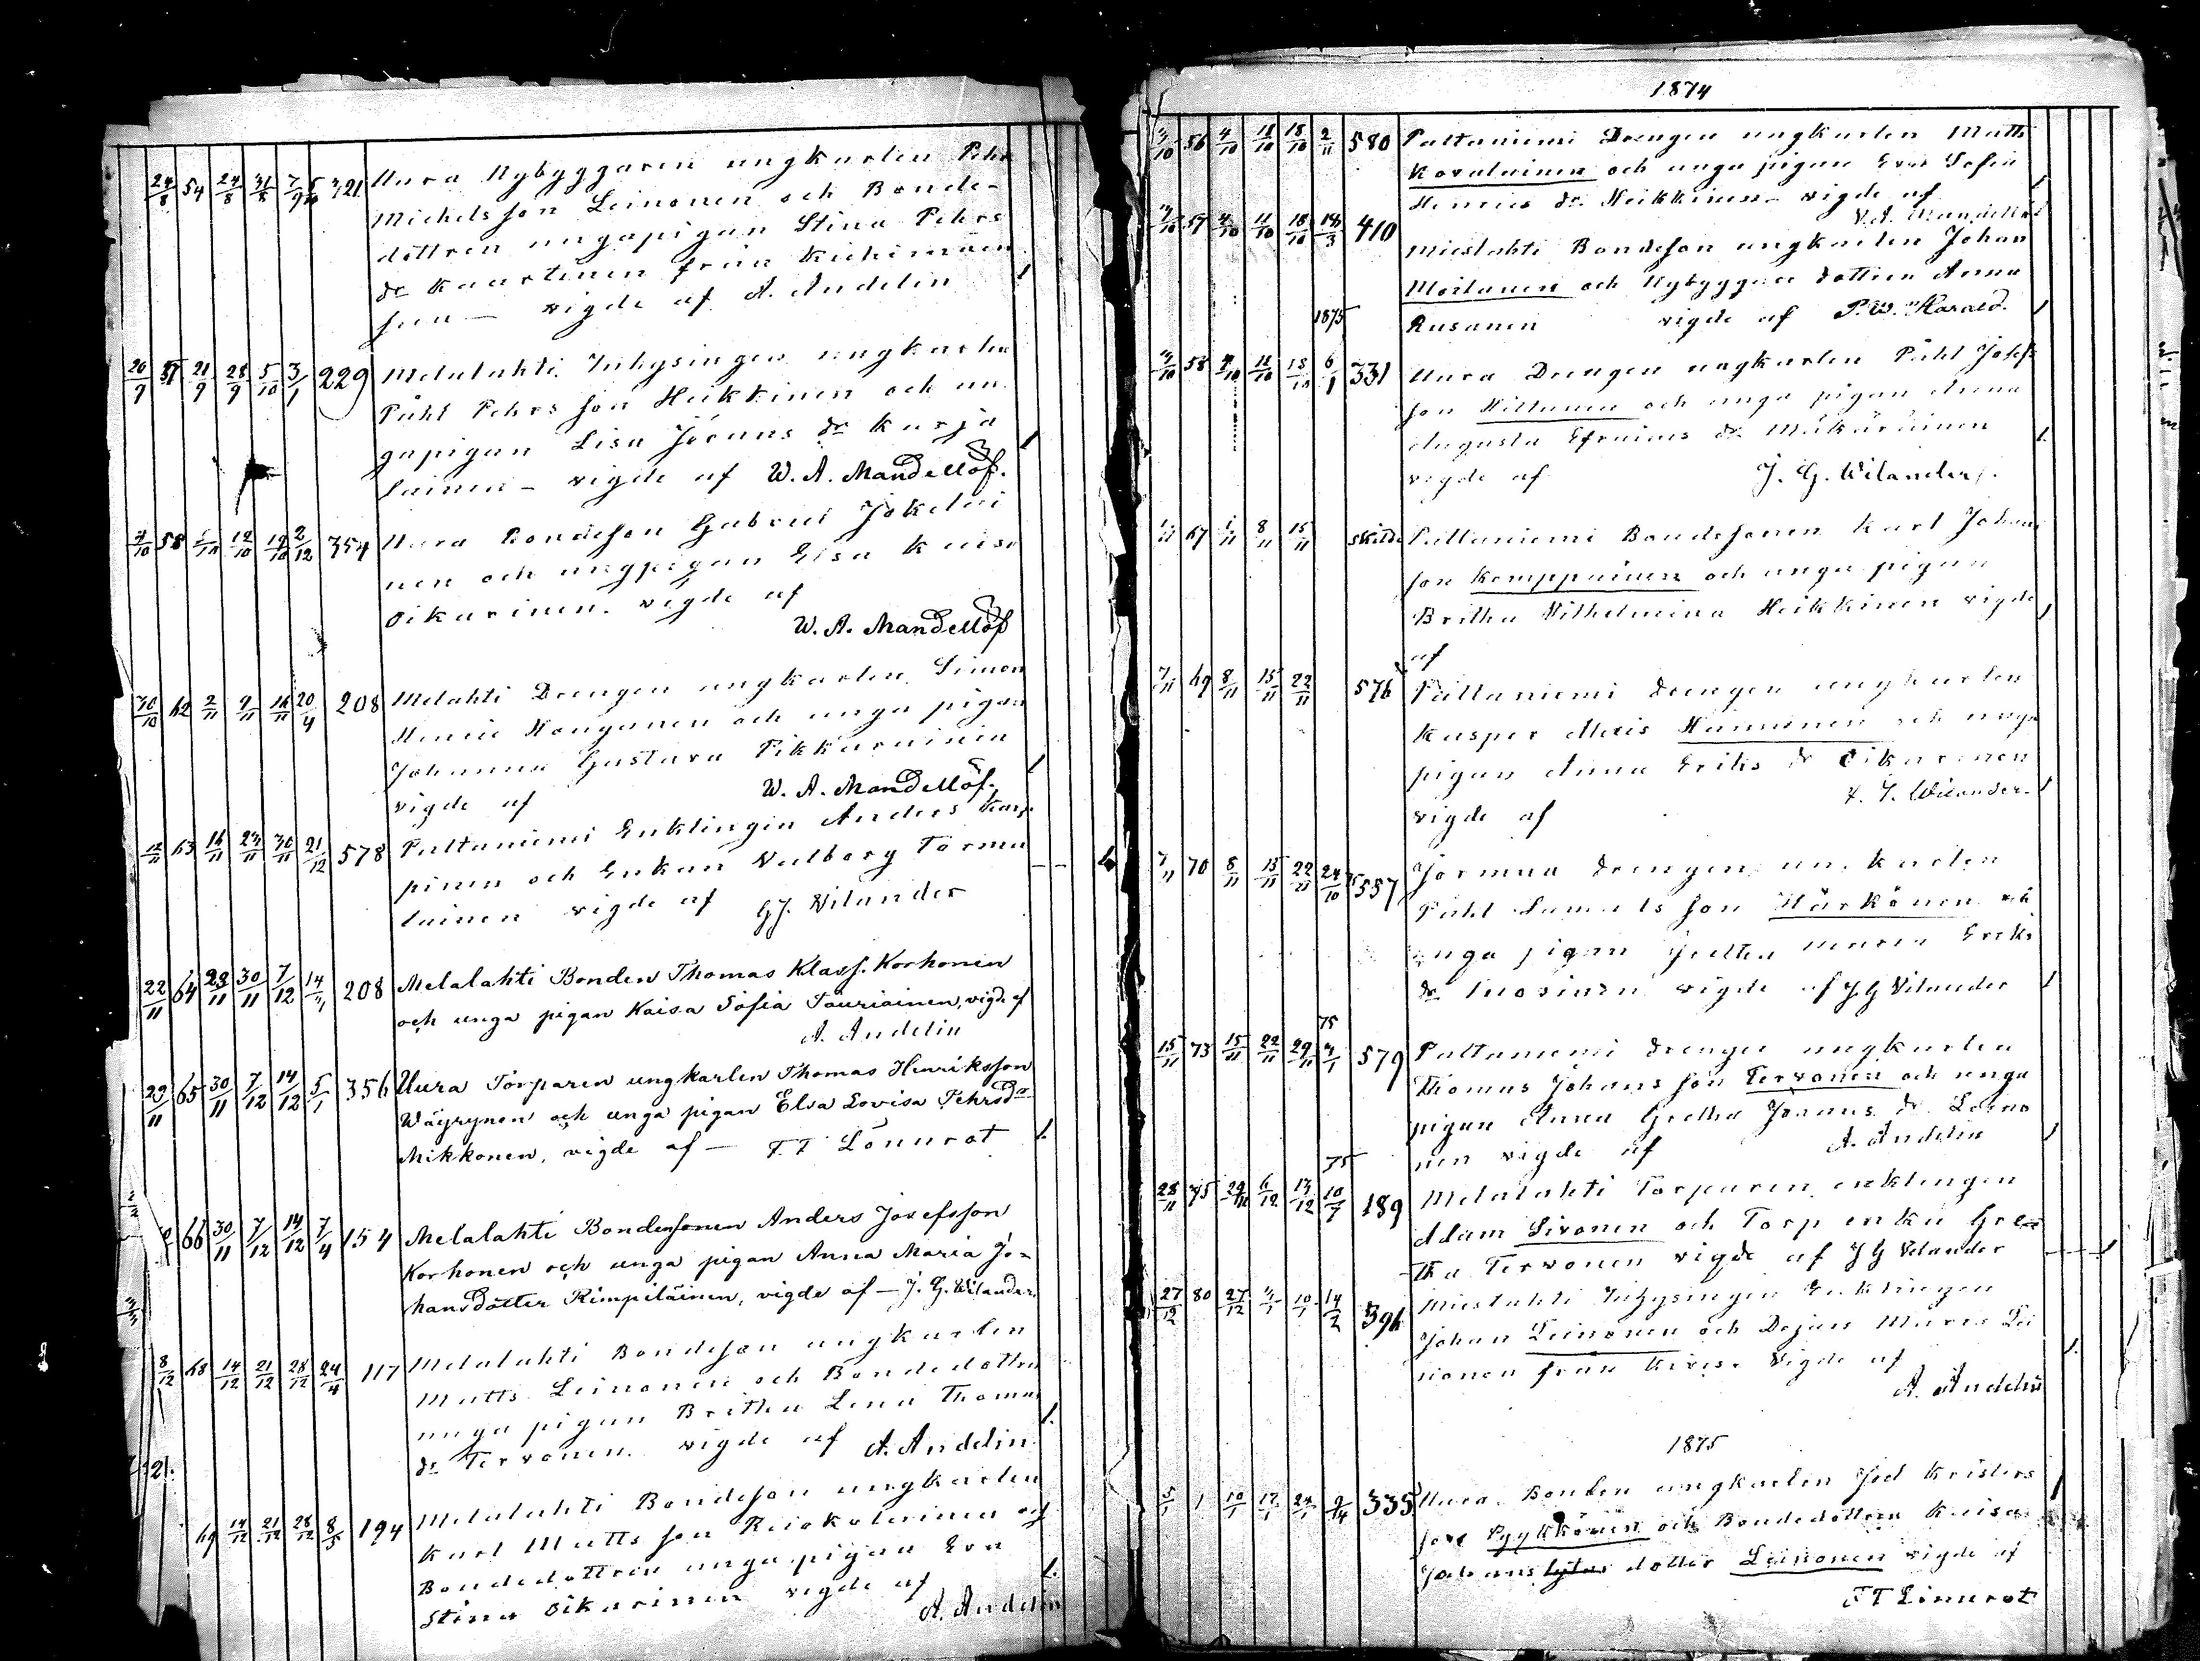 24/8 54 24/8 31/8 7/9 321 Uura Nybyggaren ungkarlen Pehr
Michelsson Leinonen och Bonde-
dottren ungapigan Stina Pehrs
dr Kaartinen från
vigde af A. Andelin
20/9 57 21/9 28/9 5/10 3/1 229 Melalahti Inhysingen ungkarlen
Påhl Pehrs son Heikkinen och un
gapigan Lisa Joanns dr Karja
lainen – vigde af W. A. Mandellöf.
4/10 58 12/10 19/10 2/12 354 Uura Bondeson Gabriel Jokelai
nen och ungpigan Elsa Kaisa
Oikarinen. vigde af
W. A. Mandellöf
30/10 62 2/11 9/11 16/11 20/4 208 Melahti Drengen ungkarlen Simon
Henric Konganen och unga pigan
Johanna Gustava Pikkarainen
vigde af W. A. Mandellöf.
12/11 63 16/11 23/11 30/11 21/12 578 Paltaniemi Enklingen Anders Karp
pinen och Enkan Valborg Torma
lainen vigde af G J. Vilander
22/11 64 23/11 30/11 7/12 208 Melalahti Bonden Thomas Klasf. Korhonen
och unga pigan Kaisa Sofia Tauriainen, vigde af
A. Andelin
29/11 65 30/11 7/12 14/12 5/1 356 Uura Torparen ungkarlen Thomas Henriksson
Wäyrynen och unga pigan Elsa Lovisa Pehrsdr
Mikkonen, vigde af – F. T Lönnrot
66 30/11 7/12 14/12 7/4 154 Melalahti Bondesonen Anders Josefsson
Korhonen och unga pigan Anna Maria Jo-
hansdotter Kimpiläinen, vigde af – J. G. Wilander.
8/12 68 14/12 21/12 28/12 24/4 117 Melalahti Bondeson ungkarlen
Matts Leinonen och Bondedottren
unga pigan Britha Lena Thomas
dr Tervonen. vigde af A. Andelin
69 14/12 21/12 28/12 8/3 194 Melalahti Bondeson ungkarlen
Karl Matts son och
Bondedottren unga pigan Eva
Stina Oikarinen vigde af
A. Andelin
1874
3/10 56 4/10 11/10 18/10 2/11 580 Paltaniemi Drengen ungkarlen Matts
Kovalainen och unga pigan Eva Sofia
Henrics dr. Heikkinen – vigde af
W. A. Mandellöf
3/10 57 4/10 11/10 18/10 18/3 410 Mieslahti Bondeson ungkarlen Johan
Moilanen och Nybyggare dottren Anna
1875 Rusanen vigde af P. W. Harald.
3/10 58 4/10 11/10 18/10 6/1 331 Uura Drengen ungkarlen Påhl Josefs
son Hiltunen och unga pigan Anna
Augusta Efraims dr. Mäkäräinen
vigde af J. G. Wilander.
67 1/11 8/11 15/11 skild Paltaniemi Bondesonen Karl Johans
son Kemppainen och unga pigan
Britha Vilhelmina Heikkinen vigde
af
7/11 69 8/11 15/11 22/11 576 Paltaniemi drengen ungkarlen
Kasper Mats Hannunen och unga
pigan Anna Eriks dr Oikarinen
vigde af J. G. Wilander.
7/11 70 8/11 15/11 22/11 24/10 557 Jormua drengen ungkarlen
Påhl Samuels son Härkönen och
unga pigan Gretha Maria Eriks
dr vigde af J G Vilander
75
15/11 73 15/11 22/11 29/11 579 Paltaniemi drengen ungkarlen
Thomas Johans son Tervonen och unga
pigan Anna Gretha Joanns dr. Leino
nen vigde af A. Andelin
75
28/11 75 29/11 6/12 13/12 10/7 189 Melalahti Torparen enklingen
Adam Sivonen och Torp enka Gre-
tha Tervonen vigde af J G Vilander
27/12 80 27/12 3/1 10/1 14/2 396 Mieslahti Inhysingen Enklingen
Johan Leinonen och Dejan Maria Lei
nonen från vigde af
A. Andelin
1875
5/1 1 10/1 17/1 24/1 9/4 335 Uura Bonden ungkarlen Joel Kristers
son Pyykkönen och Bondedottren Kaisa
Johans dotter Leinonen vigde af
F T Lönnrot